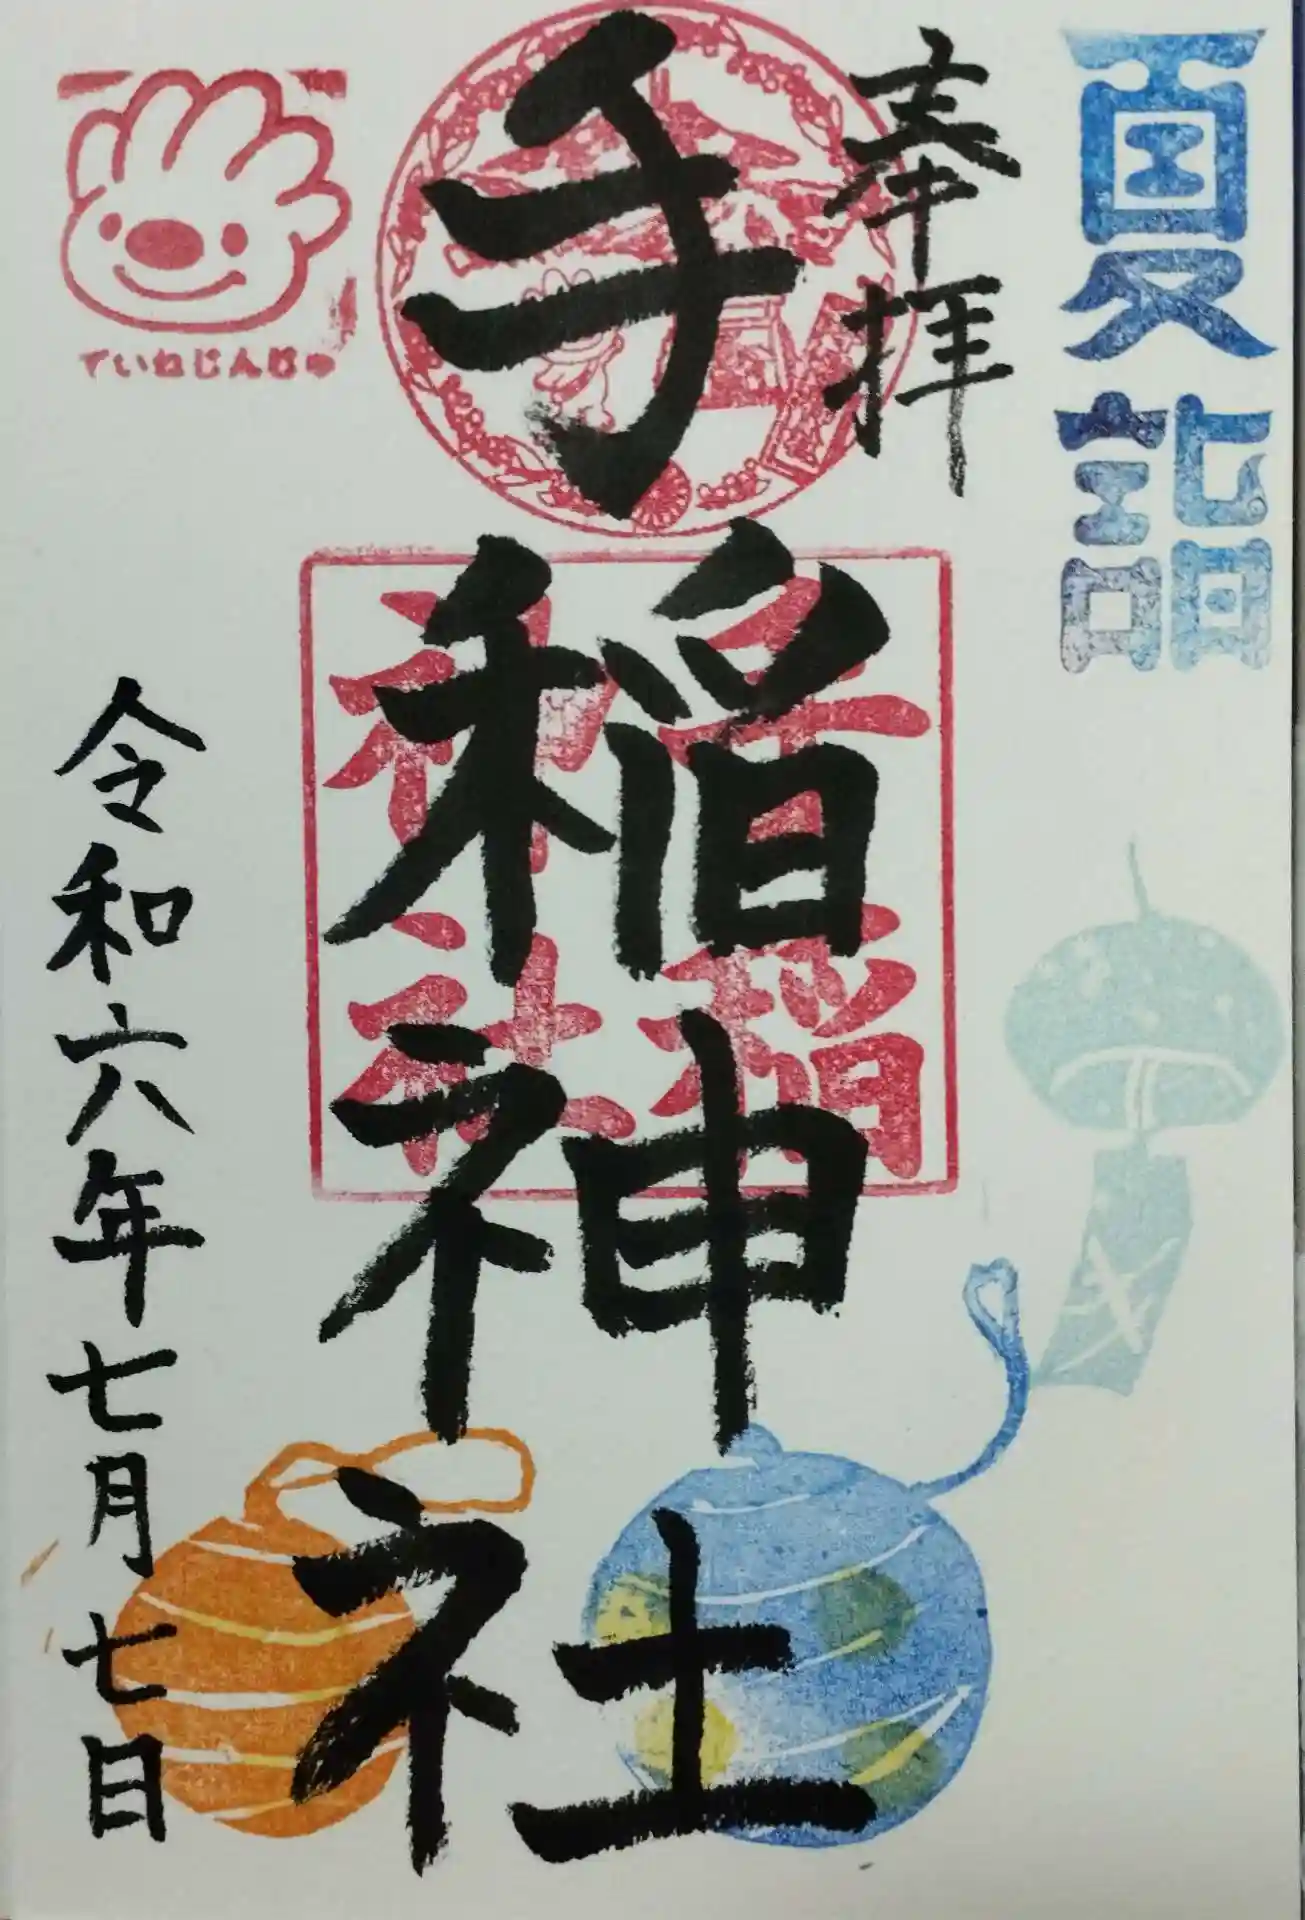 夏詣
奉拝
手稲神社
手稲
神社
ていねじんじゃ
令和六年七月七日